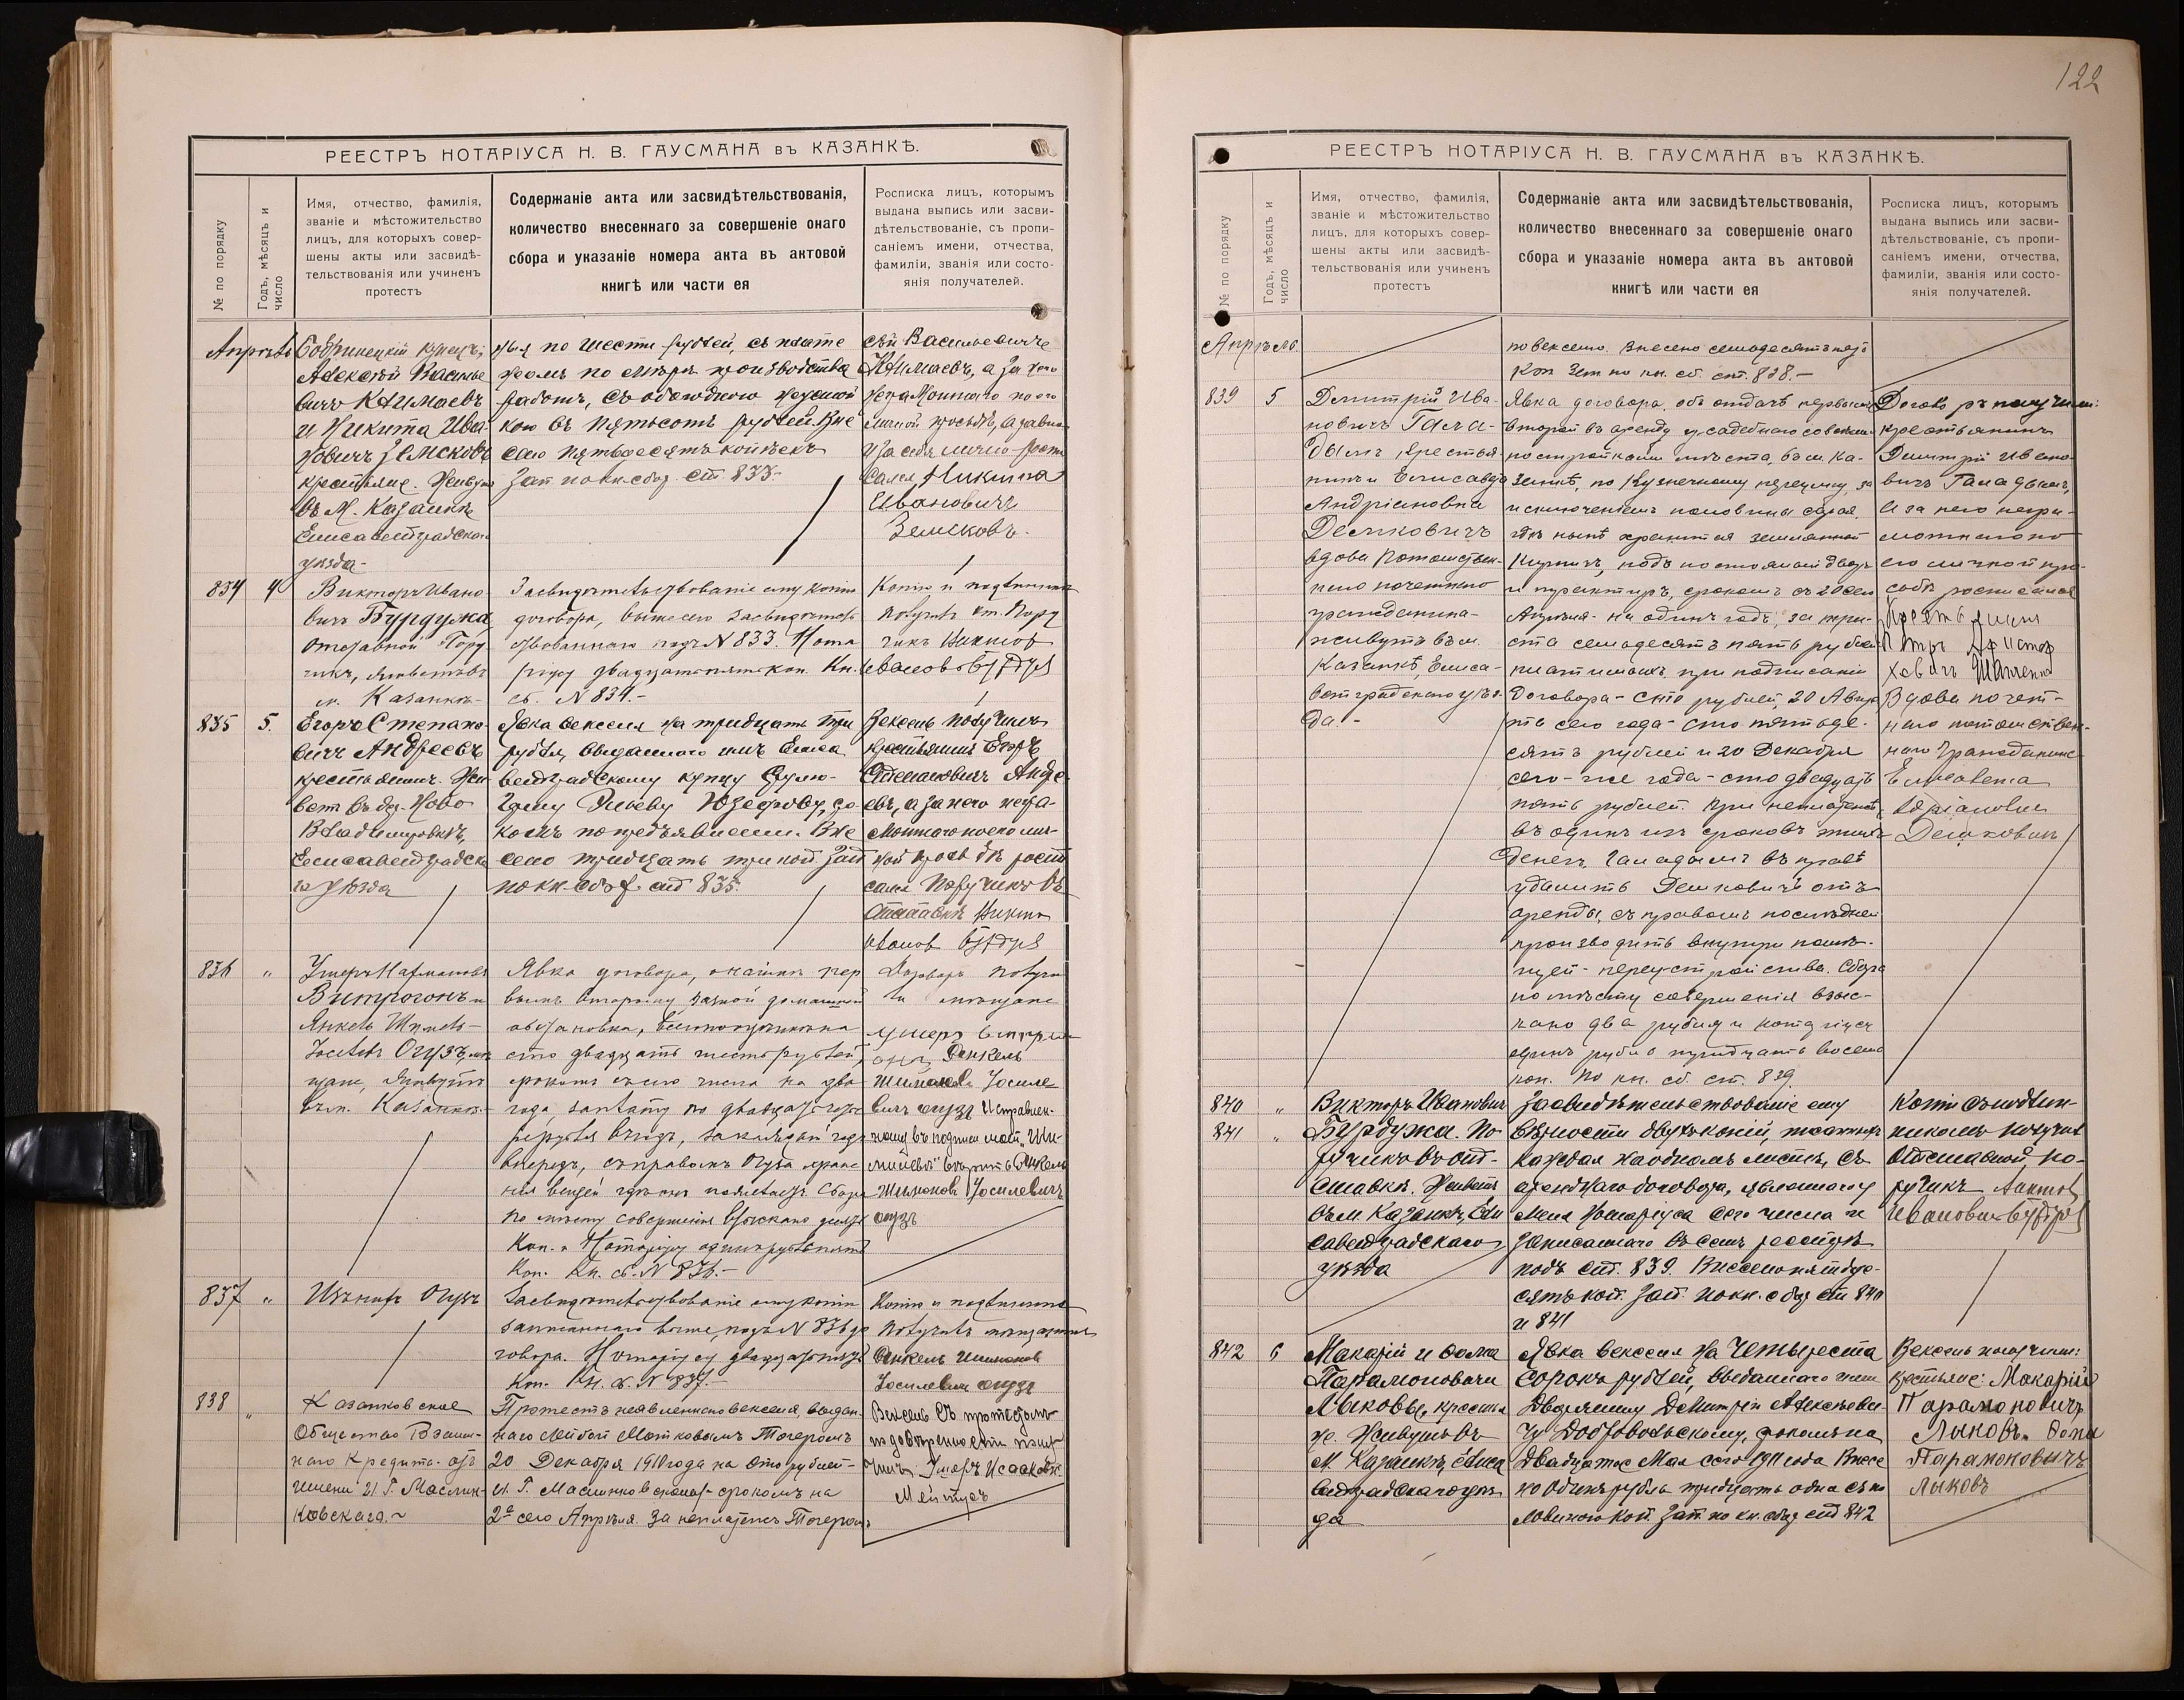 122
РЕЕСТРЪ НОТАРІУСА Н. В. ГАУСМАНА въ КАЗАНКѢ.
№ по порядку
Годъ, мѣсяцъ и
число
Имя, отчество, фамилія,
званіе и мѣстожительство
лицъ, для которыхъ совер-
шены акты или засвидѣ-
тельствованія или учиненъ
протестъ
Содержаніе акта или засвидѣтельствованія,
количество внесеннаго за совершеніе онаго
сбора и указаніе номера акта въ актовой
книгѣ или части ея
Росписка лицъ, которымъ
выдана выпись или засви-
дѣтельствованіе, съ пропи-
саніемъ имени, отчества,
фамиліи, званія или состо-
янія получателей.
Апрѣль
Бобринецкій купецъ
Алексѣй Василье
вичъ Климаевъ
и Никита Ива
новичъ Земсковъ
крестьяне. Живущіе
въ м. Казанкѣ
Елисаветградскаго
уѣзда-
ныя по шести рублей, съ плате
жомъ по мѣрѣ производства
работъ, съ обоюдною неустой
кою въ пятьсотъ рублей. Вне
сено пятьдесятъ копѣекъ
Зап по кн. сбор. ст. 833.-
сѣй Васильевичъ
Климаевъ, а за него
неграмотнаго по его
личной просьбѣ, а равно
и за себя лично распи
сался, Никита
Ивановичъ
Земсковъ.
834 4
Викторъ Ивано
вичъ Бурдужа
отставной Пору
чикъ, живетъ въ
м. Казанкѣ-
Засвидѣтельствованіе ему копіи
договора, выше сего засвидѣтель
ствованнаго подъ N 833. Нота
ріусу двадцать пять коп. Кн.
сб. N 834.-
Копію и подлинникъ
получилъ от. Пору
чикъ Викторъ
Ивановъ Бурдужа
835 5.
Егоръ Степано
вичъ Андреевъ
крестьянинъ. Жи
ветъ въ дер. Ново
Владимировкѣ,
Елисаветградска
го уѣзда
Явка векселя на тридцать три
рубля, выданнаго имъ Елиса
ветградскому купцу
Юзефову, сро
комъ по предъявленіи. Вне
сено тридцать три коп. Зап
по кн. сбор. ст 835.
Вексель получилъ
крестьянинъ Егоръ
Степановичъ Андре
евъ, а за него негра-
мотнаго по его лич-
ной просьбѣ распи
сался Поручикъ въ
отставкѣ Виктор
Иванов Бурдужа
836 "
Янкель Шимель-
въ м. Казанкѣ.-
Явка договора, о наймѣ пер
вымъ второму разной домашней
обстановки,
сто двадцать шесть рублей,
срокомъ съ сего числа на два
года, заплату по двадцать четы
ре рубля въ годъ, за каждый годъ
впередъ, съ правомъ Огуза хране
нія вещей гдѣ онъ пожелаетъ. Сбора
по мѣсту совершенія взыскано десять
Коп. и Нотаріусу одинъ рубль пять
Коп. Кн. сб. N 836.-
Договоръ получи
ли мѣщане
837 "
Янкель Огузъ
Засвидѣтельствованіе ему копіи
записаннаго выше, подъ N 836 до
говора. Нотаріусу двадцать пять
Коп. Кн. сб. N 837.-
Копію и подлинникъ
получилъ мѣщанинъ
838 "
Казанковское
Общество Взаим-
наго Кредита
имени И. Г. Маслин-
ковскаго.~
Протестъ неявленнаго векселя, выдан-
наго Лейбой Мотковымъ Тогеромъ
20 Декабря 1910 года на сто рублей-
И. Г. Маслинковскому- срокомъ на
2е сего Апрѣля. За неплатежъ Тогеромъ
Вексель съ протестомъ
по довѣренности полу-
чилъ
РЕЕСТРЪ НОТАРІУСА Н. В. ГАУСМАНА въ КАЗАНКѢ.
№ по порядку
Годъ, мѣсяцъ и
число
Имя, отчество, фамилія,
званіе и мѣстожительство
лицъ, для которыхъ совер-
шены акты или засвидѣ-
тельствованія или учиненъ
протестъ
Содержаніе акта или засвидѣтельствованія,
количество внесеннаго за совершеніе онаго
сбора и указаніе номера акта въ актовой
книгѣ или части ея
Росписка лицъ, которымъ
выдана выпись или засви-
дѣтельствованіе, съ пропи-
саніемъ имени, отчества,
фамиліи, званія или состо-
янія получателей.
Апрѣль.
по векселю. Внесено семьдесятъ пять
коп. Зап. по кн. сб. ст. 838.-
839 5
Димитрій Ива-
новичъ Гала-
дымъ крестья-
нинъ и Елисавета
Андріановна
Демковичъ
вдова потомствен-
наго почетнаго
гражданина-
живутъ въ м.
Казанкѣ, Елиса-
ветградскаго уѣз-
да-
Явка договора объ отдачѣ первымъ
второй въ аренду усадебнаго со всѣми
постройками мѣста, въ м. Ка-
занкѣ, по Кузнечному переулку, за
исключеніемъ половины сарая
гдѣ нынѣ хранится земляной
кирпичъ, подъ постоялый дворъ
и трактиръ, срокомъ съ 20 сего
Апрѣля- на одинъ годъ, за три-
ста семьдесятъ пять рублей
платимыхъ при подписаніи
договора- сто рублей, 20 Авгус
та сего года- сто пятьде-
сятъ рублей и 20 Декабря
сего- же года- сто двадцать
пять рублей. При неплатежѣ
въ одинъ изъ сроковъ этихъ
денегъ, Галадымъ въ правѣ
удалить Демковичъ отъ
аренды, съ правомъ послѣдней
производить внутри помѣ-
щеній- переустройства. Сбора
по мѣсту совершенія взыс-
кано два рубля и нотаріусу
одинъ рубль тридцать восемь
коп. По кн. сб. ст. 839.
Договоръ получили:
крестьянинъ
Димитрій Ивано-
вичъ Галадымъ,
а за него негра-
мотнаго по
его личной про-
сьбѣ росписался
Крестьянин
Петръ
Вдова почет-
наго потомствен-
наго гражданина
Елисавета
Андріановна
Демковичъ
840 "
841 "
Викторъ Ивановичъ
Бурдужа. По-
ручикъ въ от-
ставкѣ. Живетъ
въ м. Казанкѣ, Ели
саветградскаго
уѣзда
Засвидѣтельствованіе ему
вѣрности двухъ копій, писанныхъ
каждая на одномъ листѣ, съ
аренднаго договора, явленнаго у
меня Нотаріуса сего числа и
записаннаго въ семъ реестрѣ
подъ ст. 839. Внесено пятьде-
сятъ коп. Зап. по кн. сбор ст 840
и 841
Копіи съ подлин-
никомъ получилъ
Отставной по-
ручикъ Виктор
Ивановичъ Бурдужа
842 6
Макарій и Фома
Парамоновичи
Лыковы, крестья
не. Живутъ въ
м. Казанкѣ, Елиса
ветградскаго уѣз
да
Явка векселя на четыреста
сорокъ рублей, выданнаго ими
Дворянину Дмитрію Алексѣеви-
чу Добровольскому, срокомъ на
двадцатое Мая сего 1911 года. Внесе
но одинъ рубль тридцать одна съ по
ловиною коп. Зап. по кн. сбор ст 842
Вексель получили:
крестьяне: Макарій
Парамоновичъ
Лыковъ. Фома
Парамоновичъ
Лыковъ